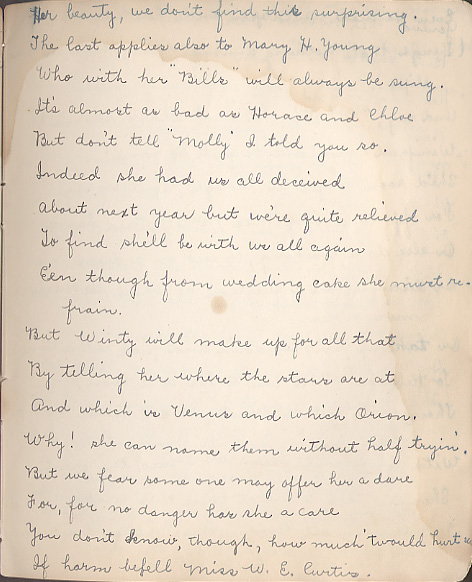 Her beauty, we don't find this surprising.
The last applies also to Mary H. Young
Who with her "Bills" will always be sung.
It's almost as bad as Horace and Chloe
But don't tell "Molly" I told you so.
Indeed she had us all deceived
About next year but we're quite relieved
To find she'll be with us all again
E'en though from wedding cake she must re-
frain.
But Winty will make up for all that
By telling her where the stars are at
And which is Venus and which Orion.
Why! she can name them without half tryin'.
But we fear some one may offer her a dare
For, for no danger has she a care
You don't know, though, how much 'twould hurt us
If harm befell Miss W. E. Curtis.